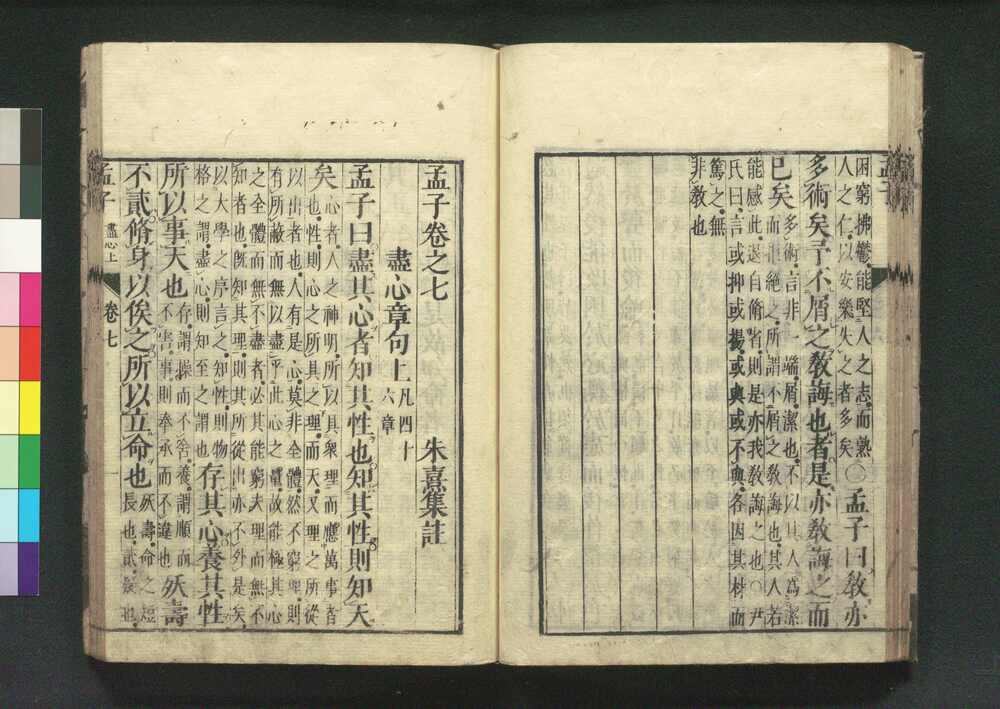 困窮拂鬱能堅人之志而熟
人之仁以安樂失之者多矣
○孟子曰敎亦
多術矣予不屑之敎誨也者是亦敎誨之而
已矣
多術言非一端屑潔也不以其人爲潔
而拒絕之所謂不屑之敎誨也其人若
能感此退自脩省則是亦我敎誨之也○尹
氏曰言或抑或揚或與或不與各因其材而
篤之無
非敎也
孟子
孟子卷之七 朱熹集註
盡心章句上
凡四十
六章
孟子曰盡其心者知其性也知其性則知天
矣
心者人之神明所以具衆理而應萬事者
也性則心之所具之理而天又理之所從
以出者也人有是心莫非全體然不窮理則
有所蔽而無以盡乎此心之量故能極其心
之全體而無不盡者必其能窮夫理而無不
知者也旣知其理則其所從出亦不外是矣
以大學之序言之知性則物
格之謂盡心則知至之謂也
存其心養其性
所以事天也
存謂操而不舍養謂順而
不害事則奉承而不違也
殀壽
不貳脩身以俟之所以立命也
殀壽命之短
長也貳疑也
孟子 盡心上 卷七 一